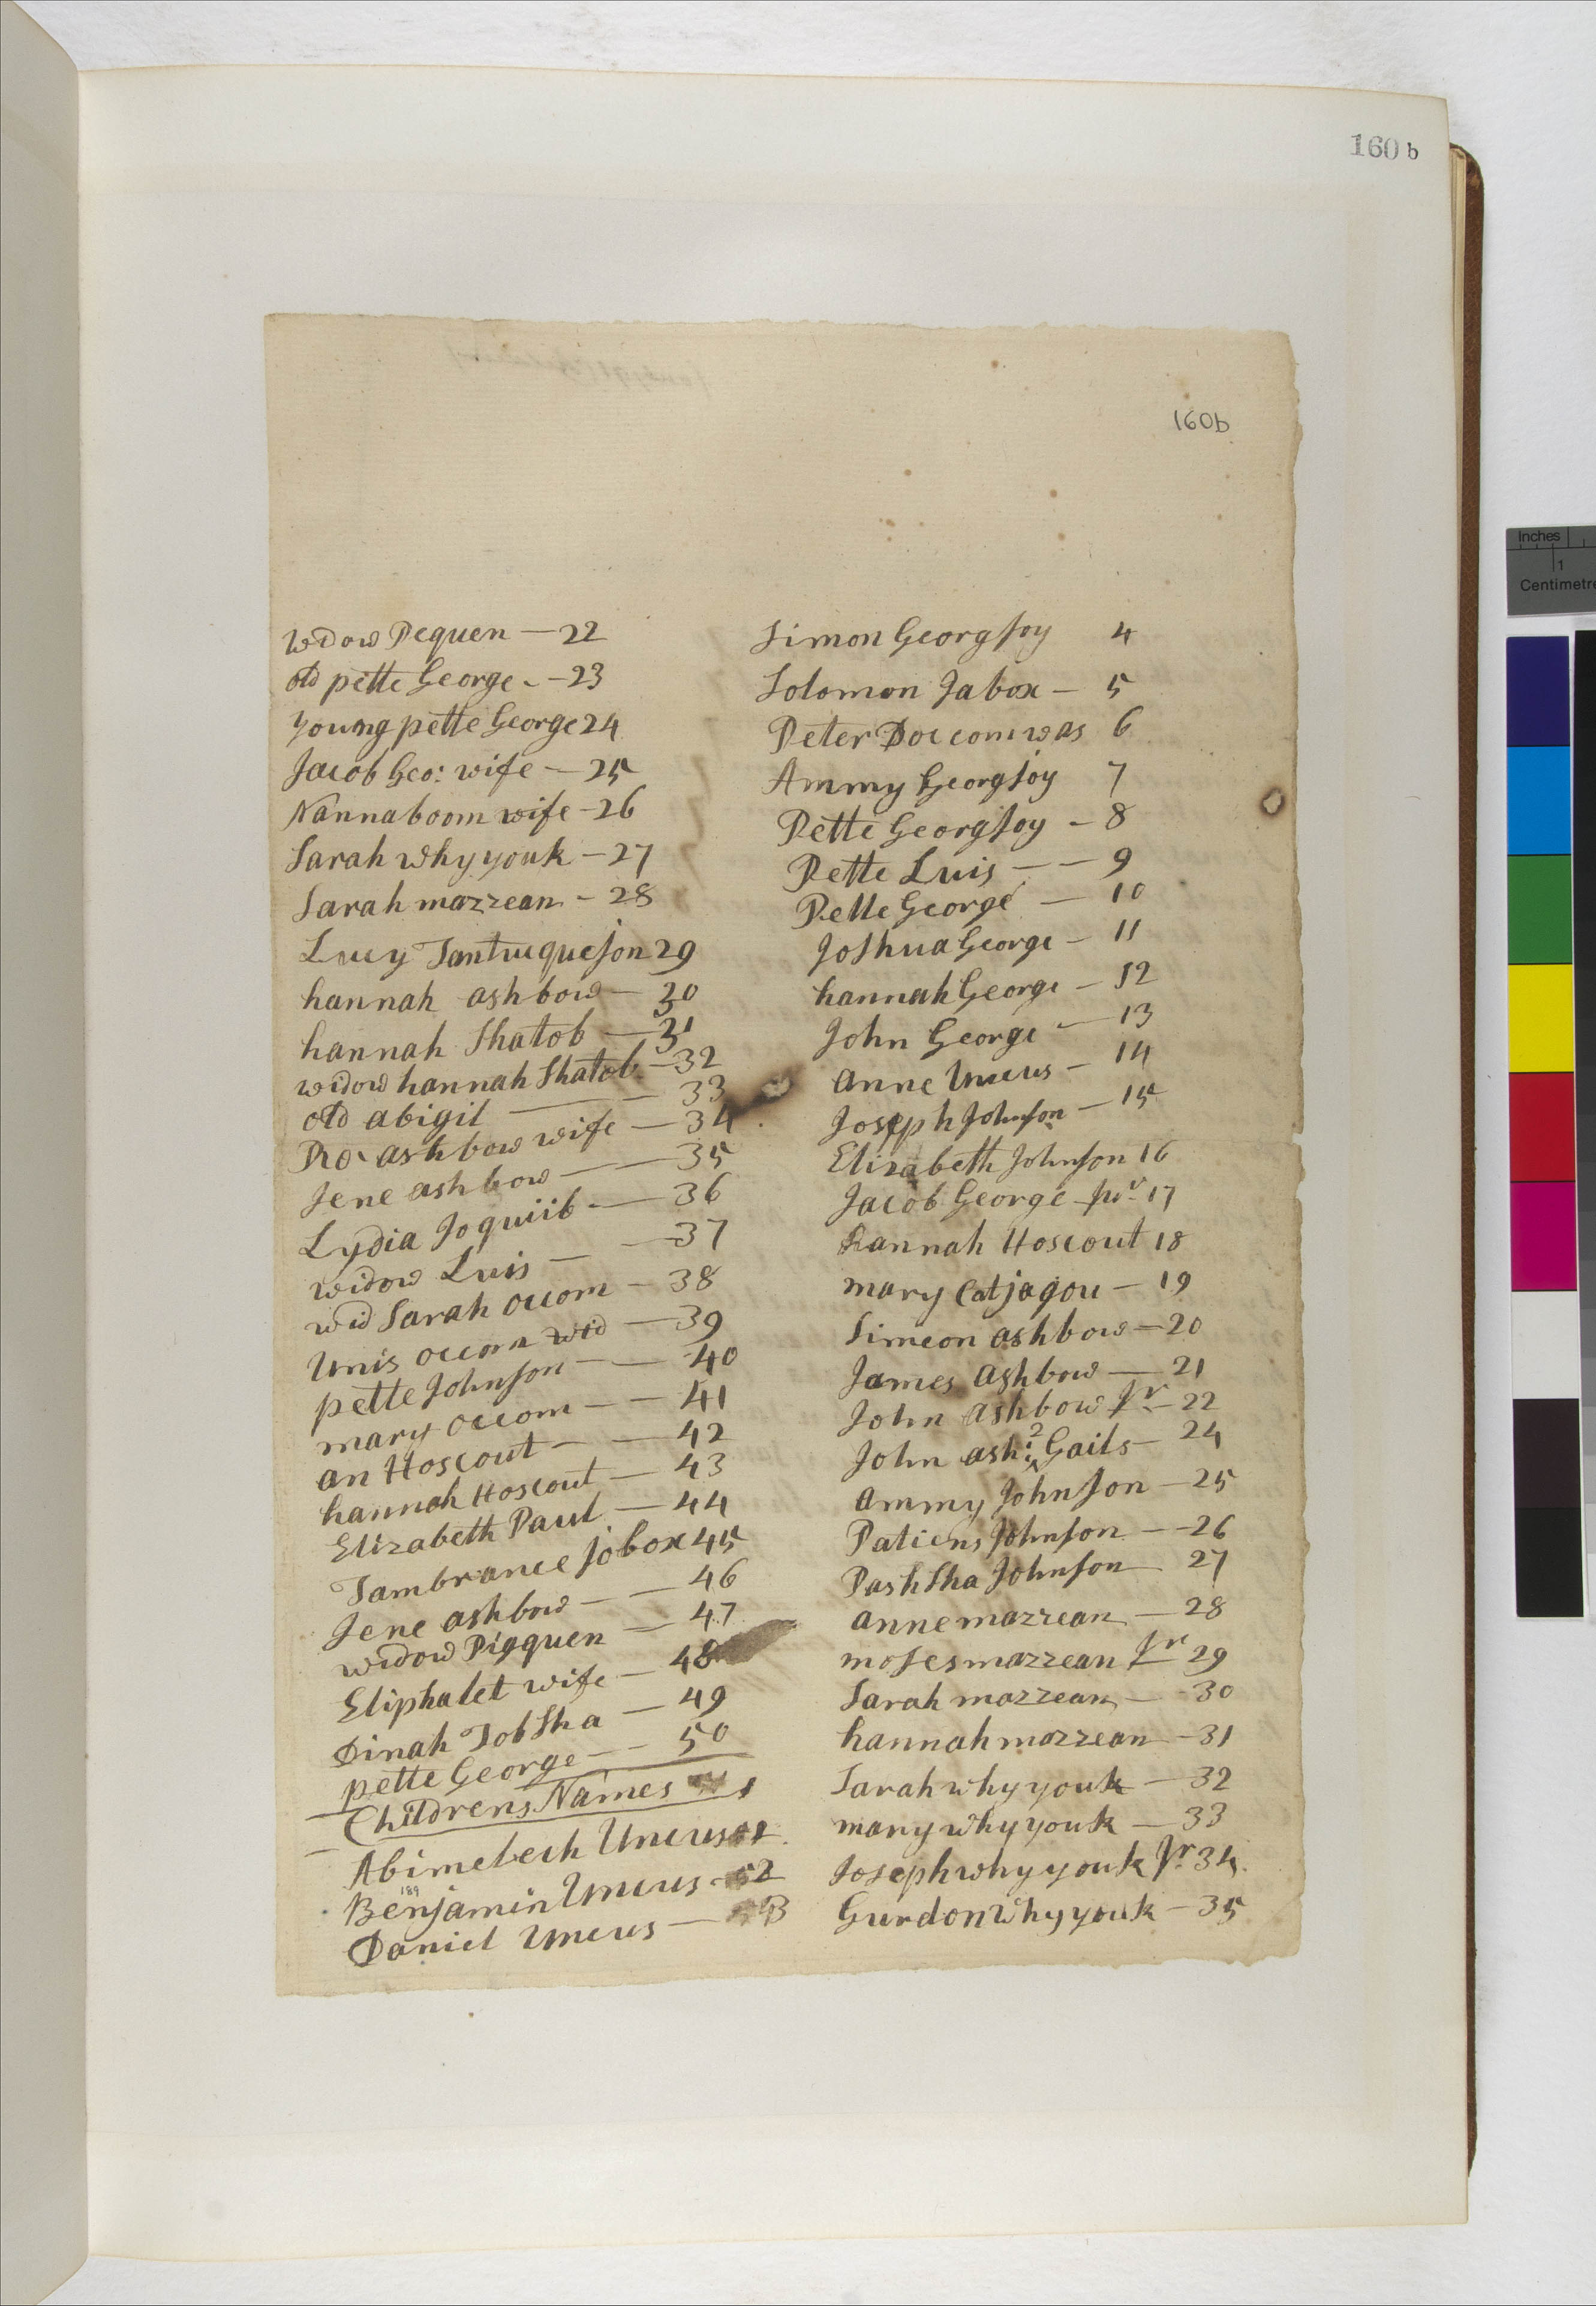 160 b
160b
Wdow Pequen — 22
old pette George - — 23
Young pette George 24
Jacob Geo: wife — 25
Nannaboom wife — 26
Sarah Whyyouk — 27
Sarah mazzean — 28
Lucy Tantuqueson 29
hannah ashbow — 30
hannah Shatob — 31
widow hannah Shatob — 32
old abigil — 33
Ro ashbow wife — 34
Jene ashbow — 35
Lydia Joquiib — 36
widow Luis — 37
wid Sarah occom — 38
Unis occom wid — 39
pette Johnson — 40
mary occom — 41
an Hoscout — 42
hannah Hoscout — 43
Elizabeth Paul — 44
Tambrance jobox 45
Jene ashbow — 46
widow Pigquen — 47
Eliphalet wife — 48
Dinah Tobsha — 49
pette George — 50
Childrens Names 1
Abimelech Uncus
Benjamin Uncus — 2
189
Daniel Uncus — 3
Simon Georgjoy 4
Solomon Jabox — 5
Peter Doccomwas 6
Ammy Georgjoy 7
Pette Georgjoy — 8
Pette Luis — — 9
Pette George — 10
Joshua George — 11
hannah George — 12
John George — 13
anne Uncus — 14
Joseph Johnson — 15
Elizabeth Johnson 16
Jacob George Jur 17
hannah Hoscout 18
mary Catjagou — 19
Simeon ashbow — 20
James Ashbow — 21
John ashbow Jr — 22
John ash: 2 Gails — 24
ammy Johnson — 25
Patiens Johnson — 26
Pashsha Johnson 27
anne mazzean — 28
moses mazzean Jr 29
Sarah mazzean — 30
hannah mazzean — 31
Sarah whyyouk — 32
mary whyyouk — 33
Joseph whyyouk Jr 34
Gurdon Whyyouk — 35
Inches
1
Centimetre